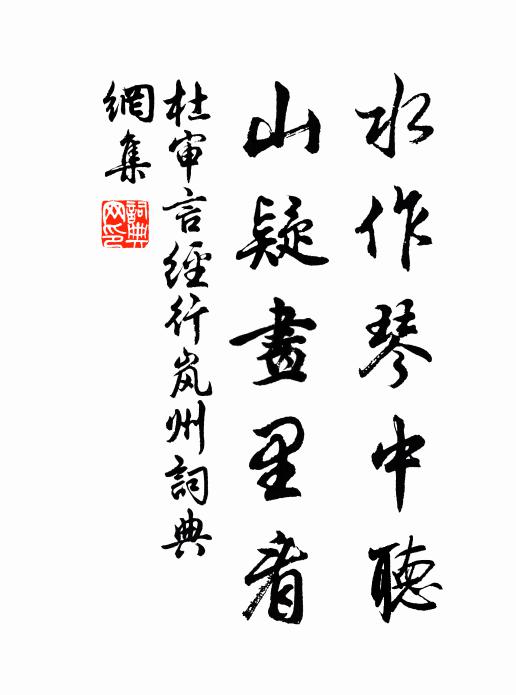 水作琴中聽
山疑畫里看
杜审言經行岚州詞典
網集
詞典網印